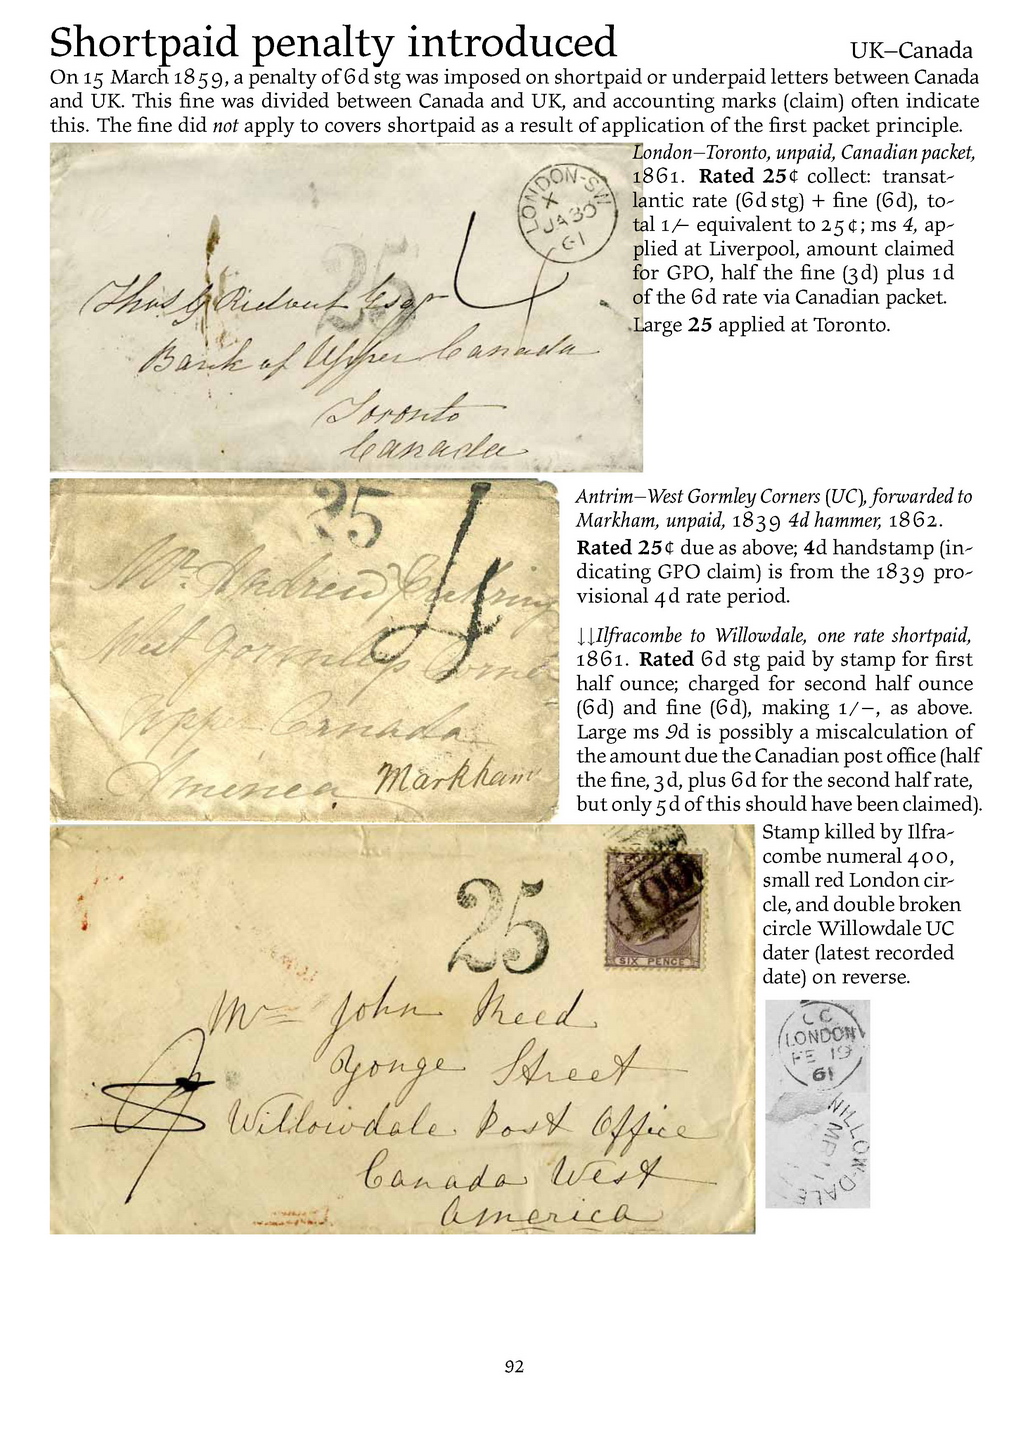 Shortpaid penalty introduced UK–Canada
On 15 March 1859, a penalty of 6d stg was imposed on shortpaid or underpaid letters between Canada
and UK. This fine was divided between Canada and UK, and accounting marks (claim) often indicate
this. The fine did not apply to covers shortpaid as a result of application of the first packet principle.
London–Toronto, unpaid, Canadian packet,
1861. Rated 25¢ collect: transat-
lantic rate (6d stg) + fine (6d), to-
tal 1/– equivalent to 25¢; ms 4, ap-
plied at Liverpool, amount claimed
for GPO, half the fine (3d) plus 1d
of the 6d rate via Canadian packet.
Large 25 applied at Toronto.
LONDON-SW
X
JA 30
61
25
4
Thos G Ridout Esqr
Bank of Upper Canada
Toronto
Canada
Antrim–West Gormley Corners (UC), forwarded to
Markham, unpaid, 1839 4d hammer, 1862.
Rated 25¢ due as above; 4d handstamp (in-
dicating GPO claim) is from the 1839 pro-
visional 4d rate period.
25
4
Mr Andrew
West Gormleys Corner
Upper Canada
America
Markham
↓↓Ilfracombe to Willowdale, one rate shortpaid,
1861. Rated 6d stg paid by stamp for first
half ounce; charged for second half ounce
(6d) and fine (6d), making 1/–, as above.
Large ms 9d is possibly a miscalculation of
the amount due the Canadian post office (half
the fine, 3d, plus 6d for the second half rate,
but only 5d of this should have been claimed).
Stamp killed by Ilfra-
combe numeral 400,
small red London cir-
cle, and double broken
circle Willowdale UC
dater (latest recorded
date) on reverse.
25
400
SIX PENCE
Mr John Reed
Yonge Street
Willowdale Post Office
Canada West
America
CC
LONDON
FE 19
61
WILLOW-DALE
MR 11
92